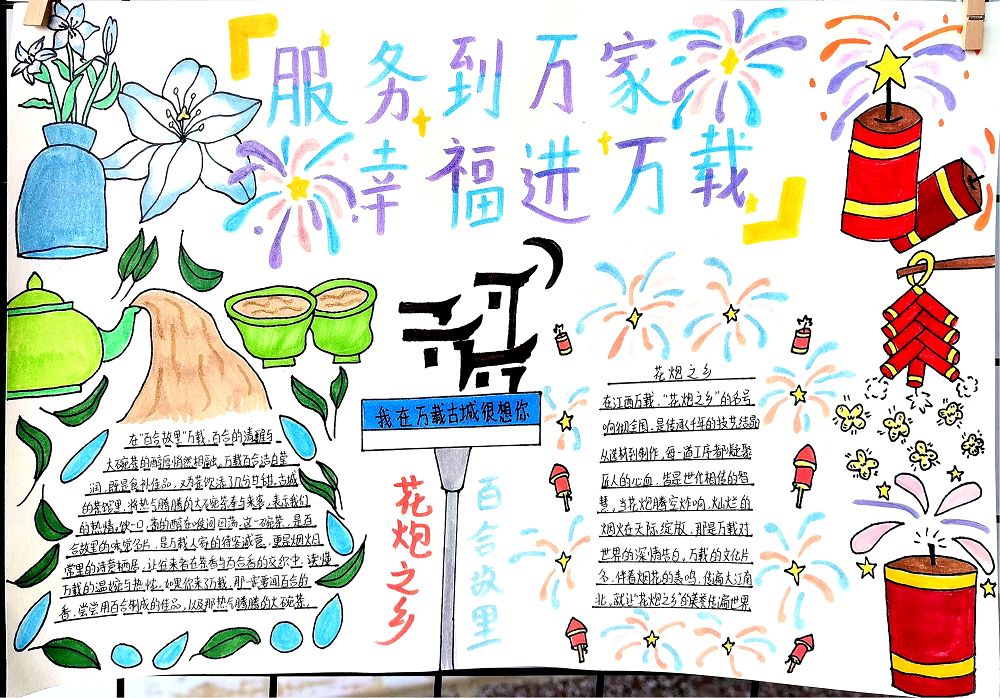 服务到万家
幸福进万载
我在万载古城很想你
花炮之乡
百合故里
在“百合故里”万载,百合的清雅与
大碗茶的醇厚悄然相融。万载百合洁白莹
润,既是食补佳品,又为茶饮添了几分甘甜。古城
的茶馆里,将热气腾腾的大碗茶奉与来客,表示我们
的热情。饮一口,茶的醇在喉间回荡。这一碗茶,是百
合故里的味觉名片,是万载人家的待客诚意,更是烟火日
常里的诗意栖居,让往来者在茶香与百合香的交织中,读懂
万载的温婉与热忱。如果你来了万载,那一定要闻百合的
香,尝尝用百合制成的佳品,以及那热气腾腾的大碗茶。
花炮之乡
在江西万载,“花炮之乡”的名号
响彻全国,是传承千年的技艺结晶
从选材到制作,每一道工序都凝聚
匠人的心血,皆是世代相传的智
慧。当花炮腾空炸响,灿烂的
烟火在天际绽放,那是万载对
世界的深情告白,万载的文化片
名,伴着烟花的轰鸣,传遍大江南
北,就让“花炮之乡”的美誉传遍世界